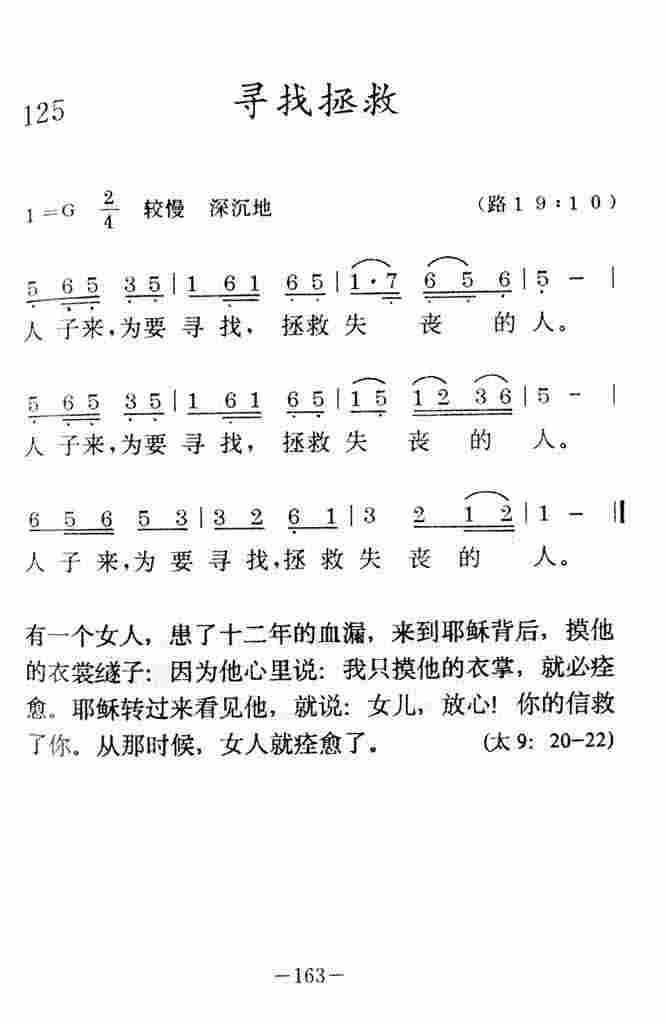 125
寻找拯救
1=G 2/4 较慢 深沉地 (路19:10)
5 6 5 3 5 | 1 6 1 6 5 | 1·7 6 5 6 | 5 - |
人子来,为要寻找,拯救失丧的人。
5 6 5 3 5 | 1 6 1 6 5 | 1 5 1 2 3 6 | 5 - |
人子来,为要寻找,拯救失丧的人。
6 5 6 5 3 | 3 2 6 1 | 3 2 1 2 | 1 - ‖
人子来,为要寻找,拯救失丧的人。
有一个女人,患了十二年的血漏,来到耶稣背后,摸他
的衣裳繸子:因为他心里说:我只摸他的衣掌,就必痊
愈。耶稣转过来看见他,就说:女儿,放心!你的信救
了你。从那时候,女人就痊愈了。 (太9:20-22)
-163-